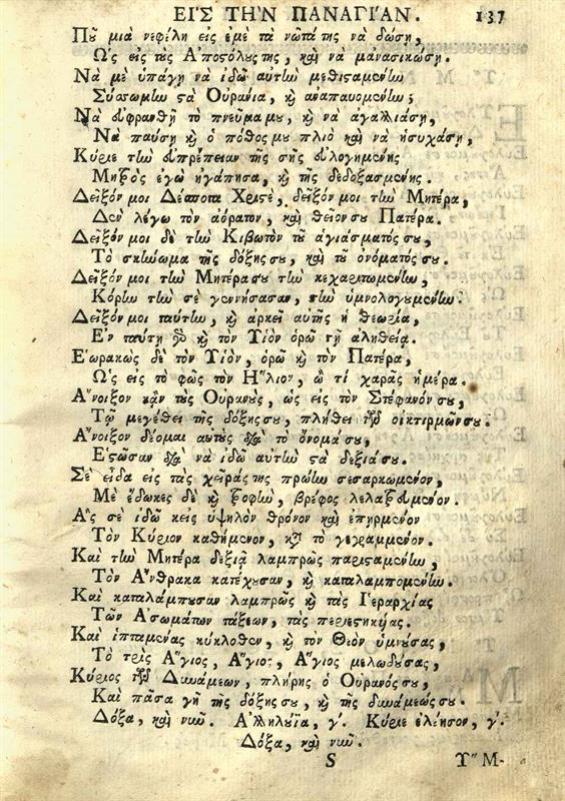 ΕΙΣ ΤΗΝ ΠΑΝΑΓΙΑΝ. 137
Ποῦ μιὰ νεφέλη εἰς ἐμὲ τὰ νῶτά της νὰ δώσῃ,
Ὡς εἰς τοὺς Ἀποστόλους της, καὶ νὰ μὰ νασικώσῃ.
Νὰ μὲ ὑπάγῃ νὰ ἰδῶ αὐτὴν μεθισαμένην
Σύσσωμον στὰ Οὐράνια, καὶ ἀναπαυομένην;
Νὰ εὐφρανθῇ τὸ πνεῦμα μου, καὶ νὰ ἀγαλλιάσῃ,
Νὰ παύσῃ καὶ ὁ πόθος μου πλιὸ καὶ νὰ ἡσυχάσῃ,
Κύριε τὴν εὐπρέπειαν τῆς σῆς εὐλογημένης
Μητρὸς ἐγὼ ἠγάπησα, καὶ τῆς δεδοξασμένης.
Δεῖξόν μοι Δέσποτα Χριστὲ, δεῖξόν μοι τὴν Μητέρα,
Δὲν λέγω τὸν ἀόρατον, καὶ θεῖόν σου Πατέρα.
Δεῖξόν μοι δὲ τὴν Κιβωτὸν τοῦ ἁγιάσματός σου,
Τὸ σκήνωμα τῆς δόξης σου, καὶ τοῦ ὀνόματός σου.
Δεῖξόν μοι τὴν Μητέρα σου τὴν κεχαριτωμένην,
Κόρην τὴν σὲ γεννήσασαν, τὴν ὑμνολογουμένην.
Δεῖξόν μοι ταύτην, καὶ ἀρκεῖ αὐτῆς ἡ θεωρία,
Ἐν ταύτῃ γὰρ καὶ τὸν Υἱὸν ὁρῶ τῇ ἀληθείᾳ.
Ἑωρακὼς δὲ τὸν Υἱὸν, ὁρῶ καὶ τὸν Πατέρα,
Ὡς εἰς τὸ φῶς τὸν Ἥλιον, ὢ τί χαρᾶς ἡμέρα.
Ἄνοιξον κᾂν τοὺς Οὐρανοὺς, ὡς εἰς τὸν Στέφανόν σου,
Τῷ μεγέθει τῆς δόξης σου, πλήθει τῶν οἰκτιρμῶν σου.
Ἄνοιξον δέομαι αὐτοὺς διὰ τὸ ὄνομά σου,
Ἑστῶσαν διὰ νὰ ἰδῶ αὐτὴν στὰ δεξιά σου.
Σὲ εἶδα εἰς τὰς χεῖράς της πρώην σεσαρκωμένον,
Μὲ ἔδωκες δὲ καὶ τροφὴν, βρέφος λελαξευμένον.
Ἂς σὲ ἰδῶ κεἰς ὑψηλὸν θρόνον καὶ ἐπηρμένον
Τὸν Κύριον καθήμενον, κατὰ τὸ γεγραμμένον.
Καὶ τὴν Μητέρα δεξιᾷ λαμπρῶς παρισταμένην,
Τὸν Ἄνθρακα κατέχουσαν, καὶ καταλαμπομένην.
Καὶ καταλάμπουσαν λαμπρῶς καὶ τὰς Ἱεραρχίας
Τῶν Ἀσωμάτων τάξεων, τὰς περιεστηκυίας.
Καὶ ἱπταμένας κύκλοθεν, καὶ τὸν Θεὸν ὑμνούσας,
Τὸ τρὶς Ἅγιος, Ἅγιος, Ἅγιος μελωδούσας,
Κύριος τῶν Δυνάμεων, πλήρης ὁ Οὐρανός σου,
Καὶ πᾶσα γῆ τῆς δόξης σου, καὶ τῆς δυνάμεώς σου.
Δόξα, καὶ νῦν. Ἀλληλούϊα, γ'. Κύριε ἐλέησον, γ'.
Δόξα, καὶ νῦν.
S ΥΜ-